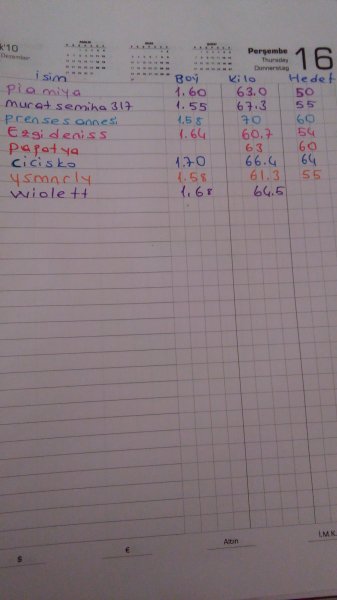 k'10 Perşembe 16
Dezember Thursday
Donnerstag
isim Boy Kilo Hedef
piamiya 1.60 63.0 50
murat semiha 317 1.55 67.3 55
prenses annesi 1.58 70 60
Ezgideniss 1.64 60.7 54
papatya 63 60
cicisko 1.70 66.4 64
ysmnrly 1.58 61.3 55
wiolett 1.68 64.5
$ € Altın I.M.K.